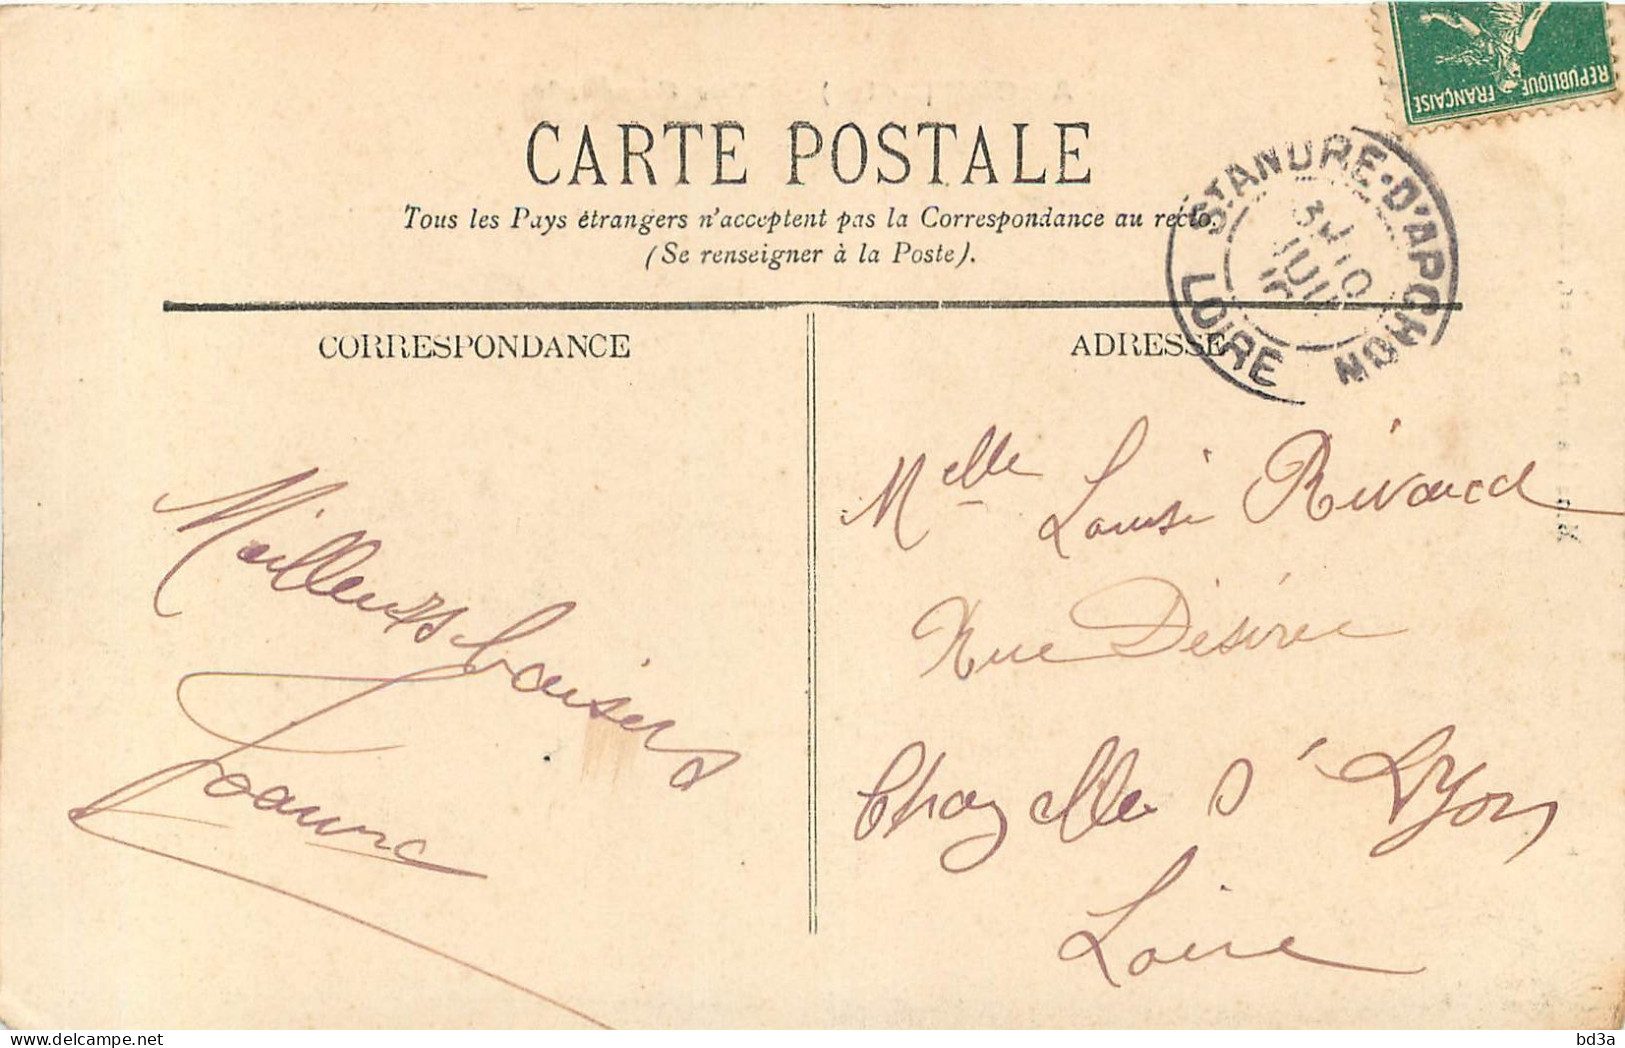 RÉPUBLIQUE FRANÇAISE
CARTE POSTALE
Tous les Pays étrangers n'acceptent pas la Correspondance au recto.
(Se renseigner à la Poste).
ST ANDRE-D'APCHON
LOIRE
CORRESPONDANCE
ADRESSE
Meilleurs baisers
Joanne
Melle Louise Rivaud
Rue Désirée
Chazelle s/ Lyon
Loire
bd3a